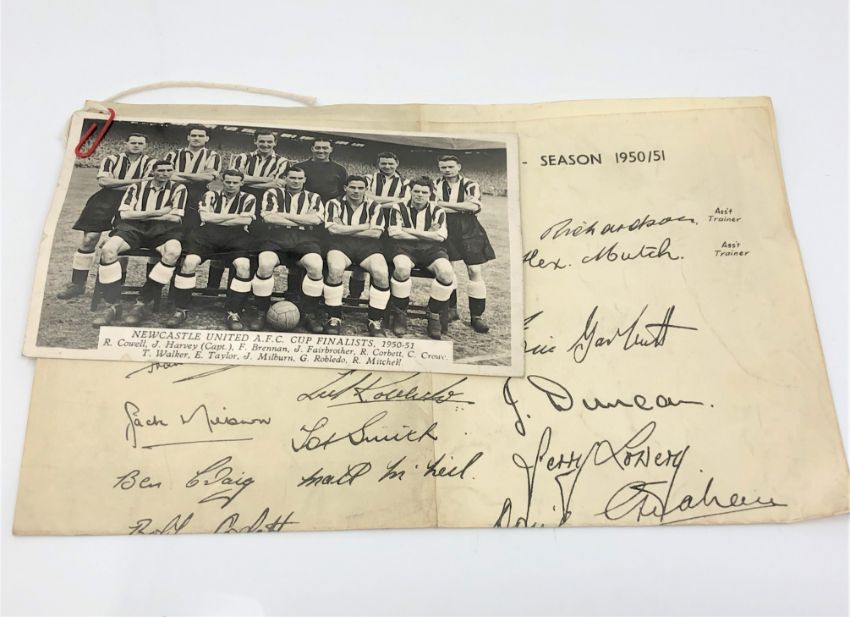 - SEASON 1950/51
NEWCASTLE UNITED A.F.C. CUP FINALISTS, 1950-51
R. Cowell, J. Harvey (Capt.), F. Brennan, J. Fairbrother, R. Corbett, C. Crowe,
T. Walker, E. Taylor, J. Milburn, G. Robledo, R. Mitchell.
Richardson. Ass't Trainer
Alex. Mutch. Ass't Trainer
Eric Garbutt
J. Duncan.
Jerry Lowery
Graham
Ted Robledo
Tot Smith
Matt McNeil
Ben Craig
Bobb Corbett